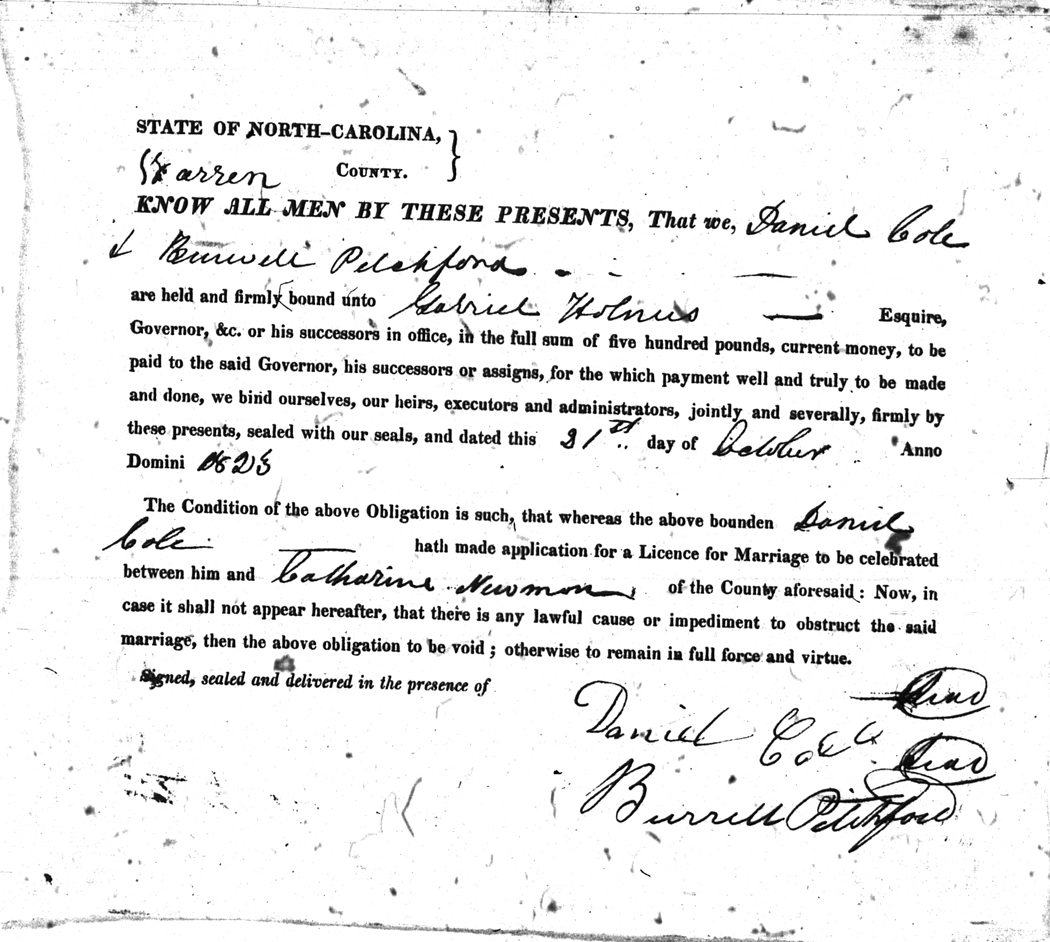 STATE OF NORTH-CAROLINA, }
Warren COUNTY.
KNOW ALL MEN BY THESE PRESENTS, That we, Daniel Cole
& Burwell Pitchford
are held and firmly bound unto Gabriel Holmes Esquire,
Governor, &c. or his successors in office, in the full sum of five hundred pounds, current money, to be
paid to the said Governor, his successors or assigns, for the which payment well and truly to be made
and done, we bind ourselves, our heirs, executors and administrators, jointly and severally, firmly by
these presents, sealed with our seals, and dated this 21st day of October Anno
Domini 1823
The Condition of the above Obligation is such, that whereas the above bounden Daniel
Cole hath made application for a Licence for Marriage to be celebrated
between him and Catharine Newmon of the County aforesaid: Now, in
case it shall not appear hereafter, that there is any lawful cause or impediment to obstruct the said
marriage, then the above obligation to be void; otherwise to remain in full force and virtue.
Signed, sealed and delivered in the presence of
Daniel Cole Seal
Burrell Pitchford Seal